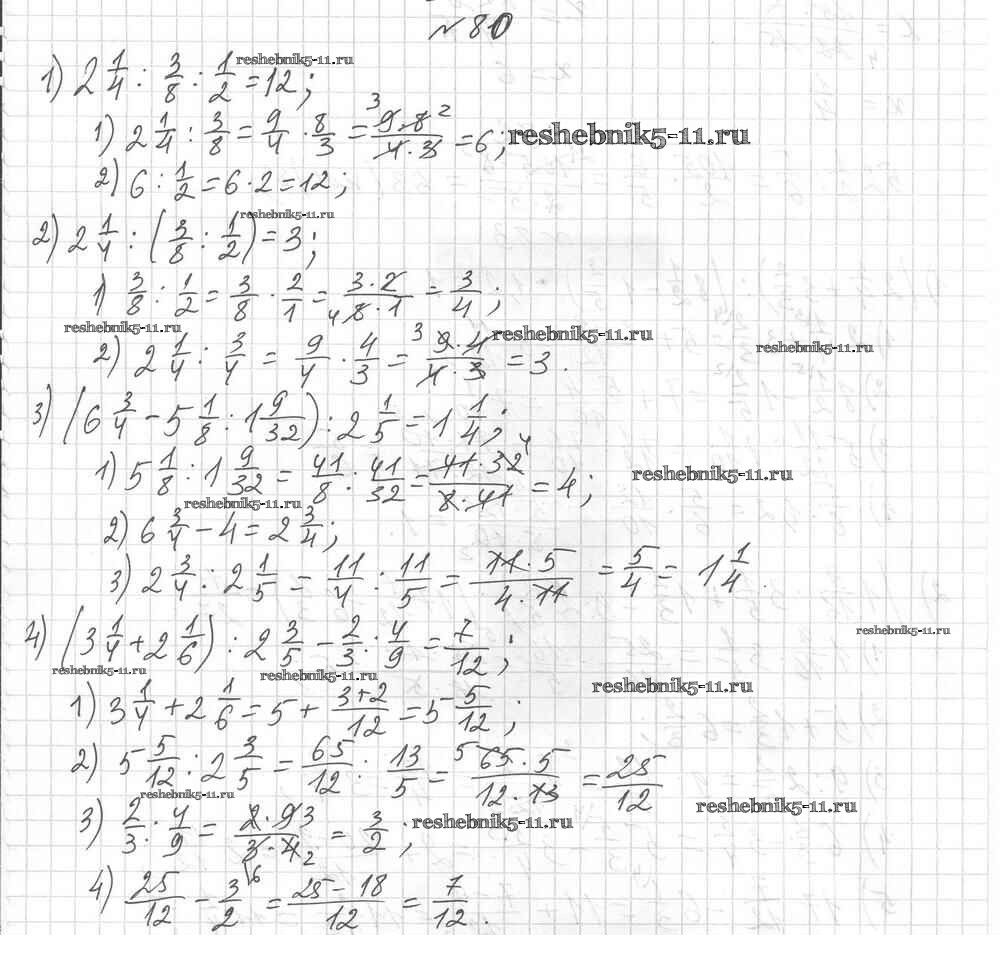 № 80
1) 2 1/4 : 3/8 : 1/2 = 12; reshebnik5-11.ru
1) 2 1/4 : 3/8 = 9/4 · 8/3 = 3 9·8 2 / 4·3 = 6; reshebnik5-11.ru
2) 6 : 1/2 = 6 · 2 = 12;
reshebnik5-11.ru
2) 2 1/4 : (3/8 : 1/2) = 3;
1) 3/8 : 1/2 = 3/8 · 2/1 = 3·2 / 4 8·1 = 3/4;
reshebnik5-11.ru reshebnik5-11.ru reshebnik5-11.ru
2) 2 1/4 : 3/4 = 9/4 · 4/3 = 3 9·4 / 4·3 = 3.
3) (6 3/4 - 5 1/8 : 1 9/32) : 2 1/5 = 1 1/4;
1) 5 1/8 : 1 9/32 = 41/8 : 41/32 = 41·32 4 / 8·41 = 4; reshebnik5-11.ru
reshebnik5-11.ru
2) 6 3/4 - 4 = 2 3/4;
3) 2 3/4 : 2 1/5 = 11/4 : 11/5 = 11·5 / 4·11 = 5/4 = 1 1/4.
4) (3 1/4 + 2 1/6) : 2 3/5 - 2/3 : 4/9 = 7/12; reshebnik5-11.ru
reshebnik5-11.ru reshebnik5-11.ru reshebnik5-11.ru
1) 3 1/4 + 2 1/6 = 5 + 3+2/12 = 5 5/12;
2) 5 5/12 : 2 3/5 = 65/12 : 13/5 = 5 65·5 / 12·13 = 25/12
reshebnik5-11.ru reshebnik5-11.ru
3) 2/3 : 4/9 = 2·9 3 / 3·4 2 = 3/2; reshebnik5-11.ru
4) 25/12 - 3/2 \6 = 25-18/12 = 7/12.